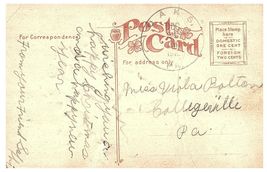 For Correspondence
Post
Card
For address only
Place Stamp
here
DOMESTIC
ONE CENT
FOREIGN
TWO CENTS
AKS
Wishing you a
happy Christmas
and a happy new
year.
From your friend
Miss Viola Bolton
Collegeville
Pa.